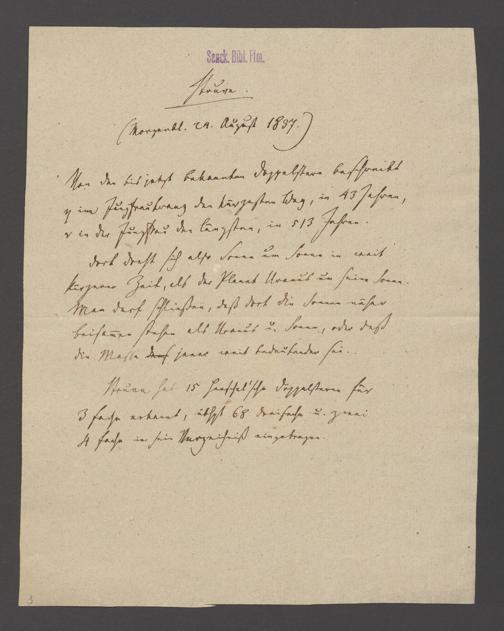 Senck. Bibl. Ffm.
Struve.
(Morgenbl. 24. August 1837.)
Von den bis jetzt bekannten Doppelstern beschreibt
η im Jungfraukranz den kürzesten Weg, in 43 Jahren,
γ in der Jungfrau den längsten, in 513 Jahren.
Dort dreht sich also Sonne um Sonne in weit
kürzerer Zeit, als der Planet Uranus um seine Sonne.
Man darf schließen, daß dort die Sonnen näher
beisammen stehen als Uranus u. Sonne, oder daß
die Masse jener weit bedeutender sei.
Struve hat 15 Herschel'sche Doppelsterne für
3 fache erkannt, 68 dreifache u. zwei
4 fache in sein Verzeichniß eingetragen.
3